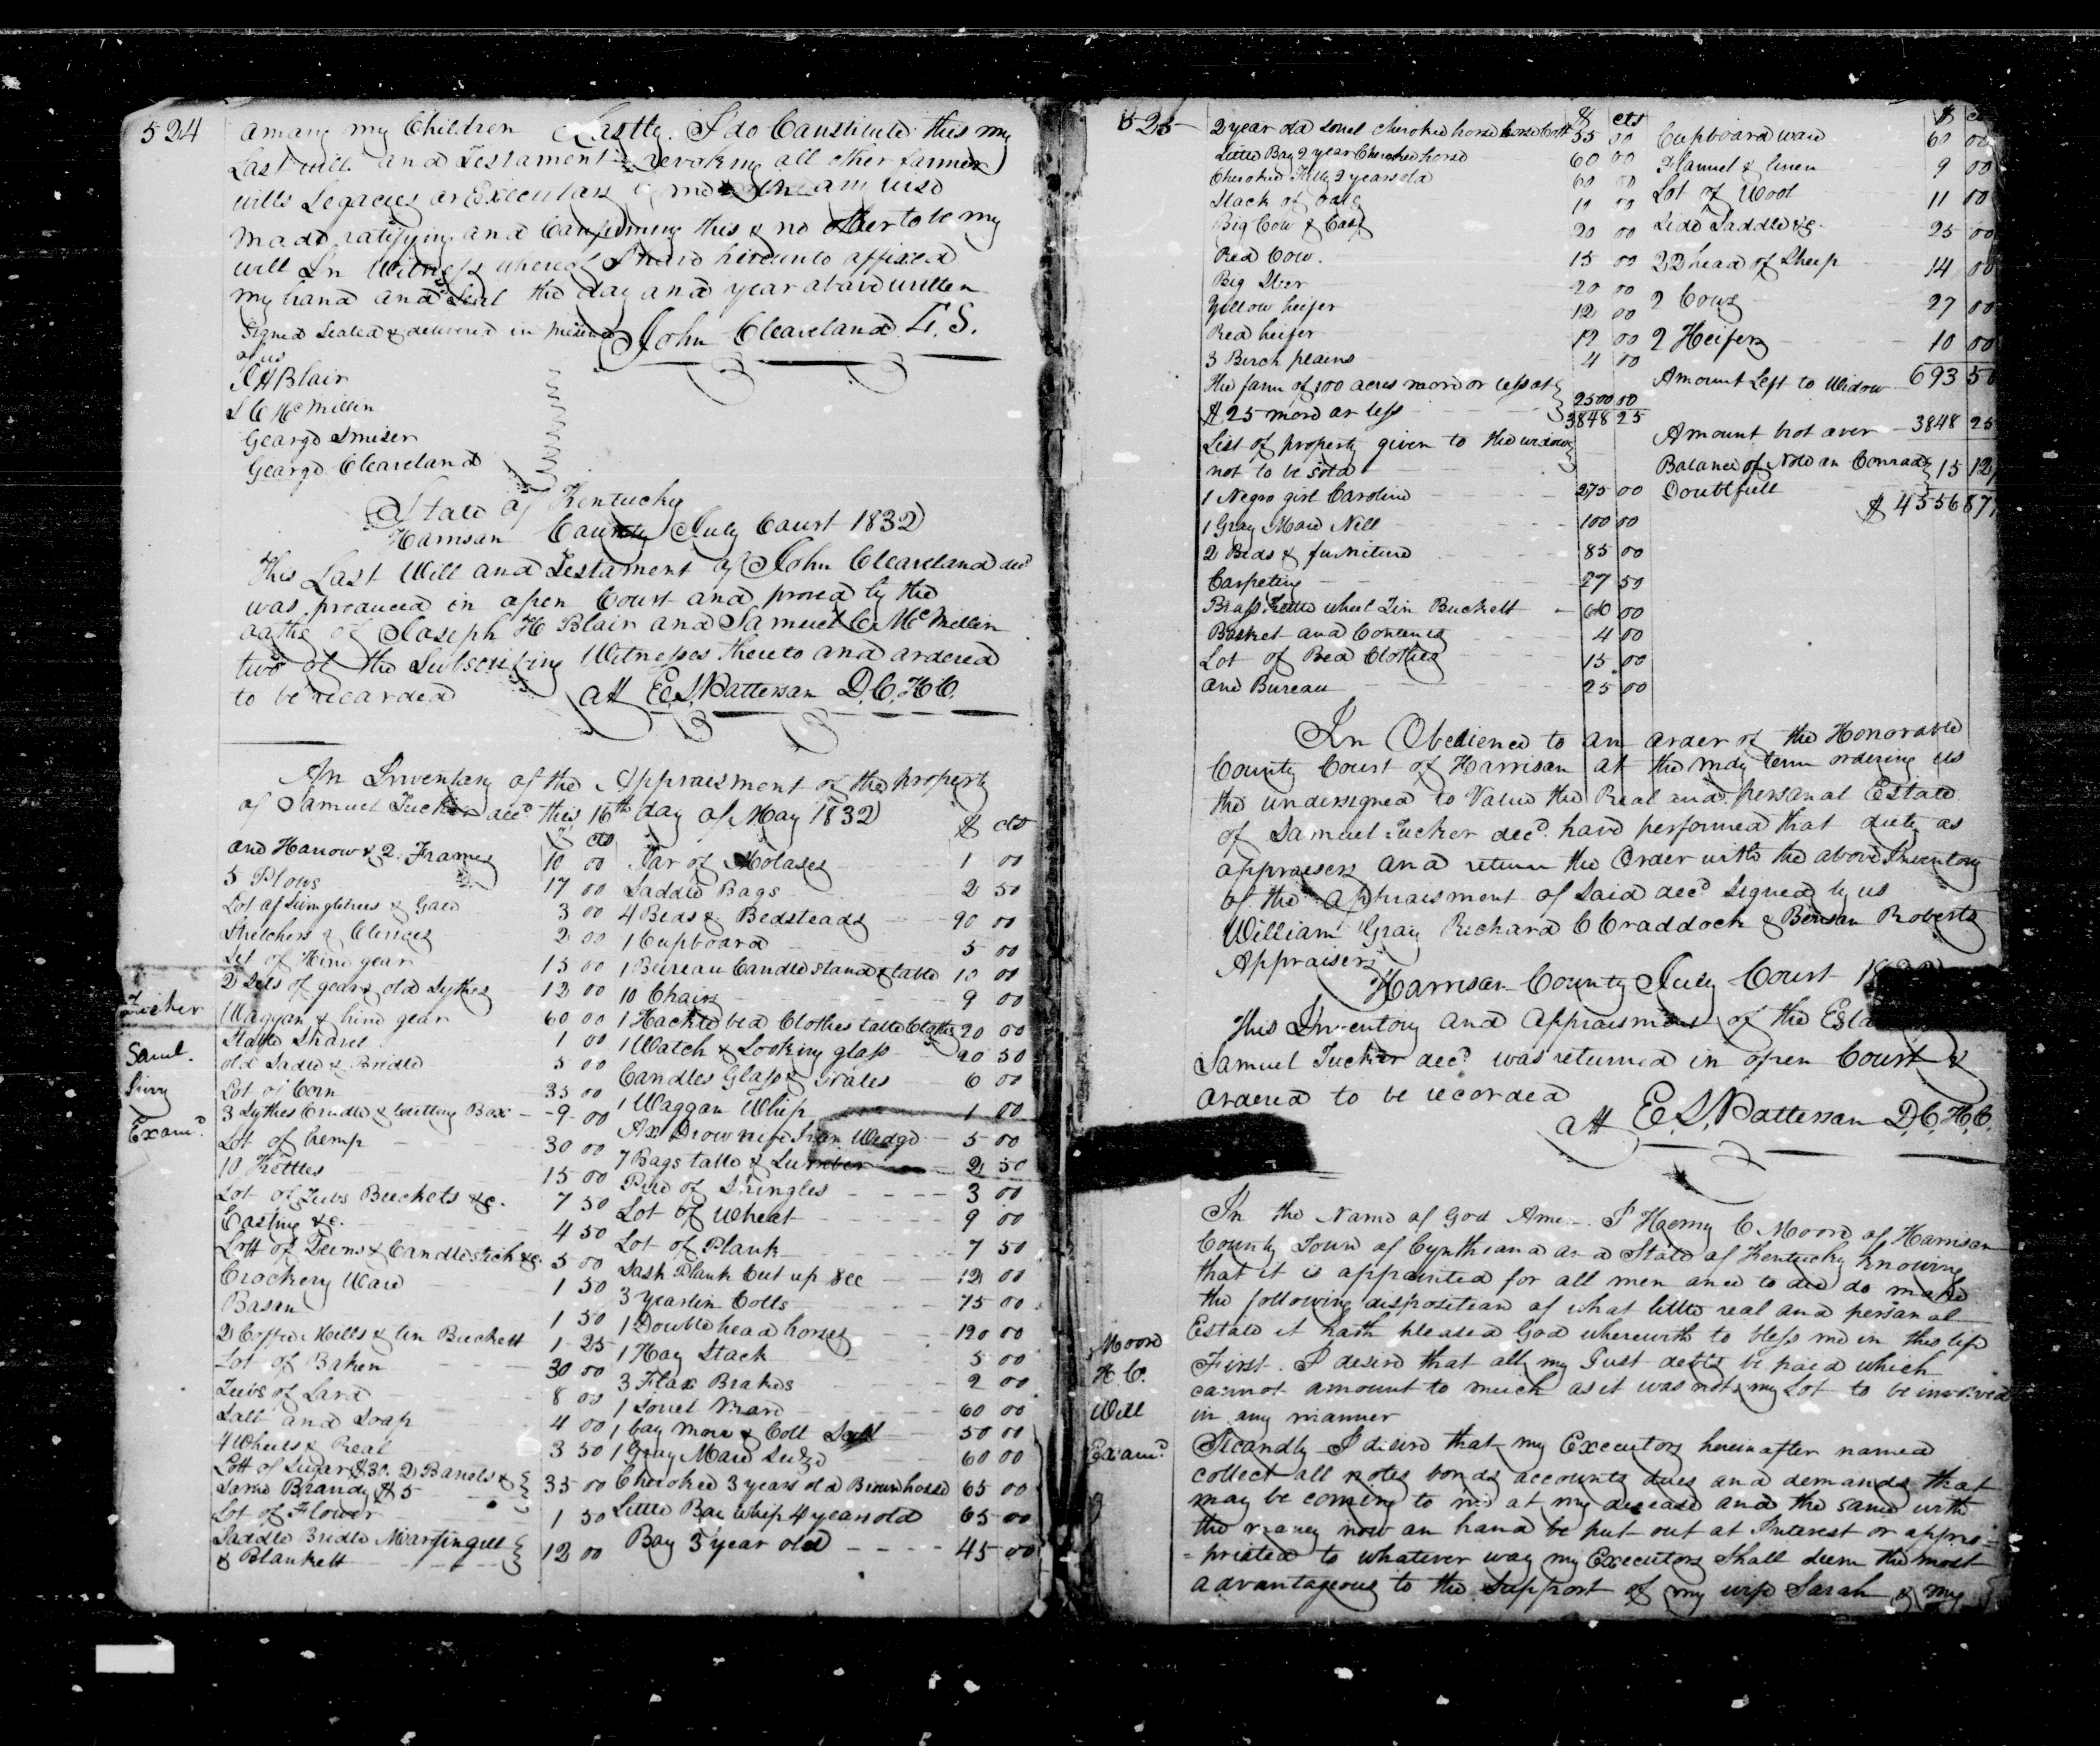 524
among my Children Lastly I do Constitute this my
Last will and Testament revoking all other former
wills Legacies or Executors by me in any wise
made ratifying and Confirming this & no other to be my
will In Witness whereof I have hereunto affixed
my hand and Seal the day and year above written
Signed Sealed & delivered in presence
of us
John Cleaveland L.S.
J H Blair
S C McMillin
George Smiser
George Cleaveland
State of Kentucky
Harrison County July Court 1832
This Last Will and Testament of John Cleaveland decd
was produced in open Court and proved by the
oaths of Joseph H Blair and Samuel C McMillin
two of the Subscribing Witnesses thereto and ordered
to be recorded
att E. S. Patterson D.C.H.C.
Tucker
Saml.
Exam.d
An Inventory of the Appraisment of the property
of Samuel Tucker decd this 16th day of May 1832
$ cts
one Harrow & 2 Frames 10 00
5 Plows 17 00
Lot of Swingletrees & Gare 3 00
Stretchers & Clevices 2 00
Set of Hind gear 15 00
2 Sets of gears old Sythes 12 00
1 Waggon & hind gear 60 00
1 00
old Sadle & Bridle 5 00
Lot of Corn 35 00
3 Sythes Cradle & Cutting Box 9 00
Lot of hemp 30 00
10 Kettles 15 00
Lot of Tubs Buckets &c. 7 50
Casting &c. 4 50
Lott of Candlestick &c. 5 00
Crockery Ware 1 50
Bason 1 50
2 Coffee Mills & tin Buckett 1 25
Lot of Baken 30 00
Tubs of Lard 8 00
Salt and Soap 4 00
4 Wheels & Real 3 50
Lott of Suger $30. 2 Barrels &
Some Brandy $5 35 00
Lot of Flower 1 50
Saddle Bridle Martingill
& Blankett 12 00
$ cts
Jar of Molases 1 00
Saddle Bags 2 50
4 Beds & Bedsteads 90 00
1 Cupboard 5 00
1 Bureau Candlestand & table 10 00
10 Chairs 9 00
1 Hackle bed Clothes table Cloths 20 00
1 Watch & Looking glass 20 50
Candles Glass & 6 00
1 Waggon Whip 1 00
Ax Drow nife Iron Wedge 5 00
7 Bags table & Lumber 2 50
Pile of Shingles 3 00
Lot of Wheat 9 00
Lot of Plank 7 50
Sash Plank Cut up &cc 12 00
3 yearlin Colts 75 00
1 Double head horses 120 00
1 Hay Stack 5 00
3 Flax Brakes 2 00
1 Sorrel Mare 60 00
1 bay Mare & Colt 50 00
1 Gray Mare 60 00
Cherokee 3 years old Brown horse 65 00
Little Bay Whip 4 years old 65 00
Bay 3 year old 45 00
525
$ cts
2 year old sorrel cherokee horse horse Colt 55 00
Little Bay 2 year Cherokee horse 60 00
Cherokee Filly 2 years old 60 00
Stack of oats 10 00
Big Cow & Calf 20 00
Red Cow. 15 00
Big Steer 20 00
Yellow heifer 12 00
Red heifer 12 00
3 Birch plains 4 00
the farm of 100 acres more or less at
$25 more or less 2500 00
3848 25
List of property given to the widow
not to be sold
1 Negro girl Caroline 275 00
1 Gray Mare Nell 100 00
2 Beds & furniture 85 00
Carpeting 27 50
Brass Kettle wheel Tin Buckett
Basket and Contents 4 00
Lot of Bed Clothes 15 00
one Bureau 25 00
$ c
Cupboard ware 60 00
Flannel & linen 9 00
Lot of Wool 11 00
Side Saddle &c. 25 00
22 head of Sheep 14 00
2 Cows 27 00
2 Heifers 10 00
Amount Left to Widow 693 50
Amount brot over 3848 25
Balance of Note on Conrad 15 12
Doubtfull
$ 4556 87
In Obedience to an order of the Honorable
County Court of Harrison at the May term ordering us
the undersigned to Value the Real and personal Estate
of Samuel Tucker decd. have performed that duty as
appraisers and return the Order with the above Inventory
of the Appraisment of Said decd Signed by us
William Gray Richard C Craddock & Benson Roberts
Appraisers
Harrison County July Court
This Inventory and Appraisment of the
Samuel Tucker decd was returned in open Court &
ordered to be recorded
att E. S. Patterson D.C.H.C.
Moore
H. C.
Will
Exam.d
In the Name of God Amen. I Haerny C Moore of Harrison
County Town of Cynthiana and State of Kentucky knowing
that it is appointed for all men once to die do make
the following disposition of what little real and personal
Estate it hath pleased God wherewith to bless me in this life
First. I desire that all my Just debts be paid which
cannot amount to much as it was not my Lot to be involved
in any manner
Secondly I desire that my Executors hereinafter named
collect all notes bonds accounts dues and demands that
may be coming to me at my decease and the same with
the money now on hand be put out at Interest or appro=
=priated to whatever way my Executors Shall deem the most
advantageous to the Support of my wife Sarah & my